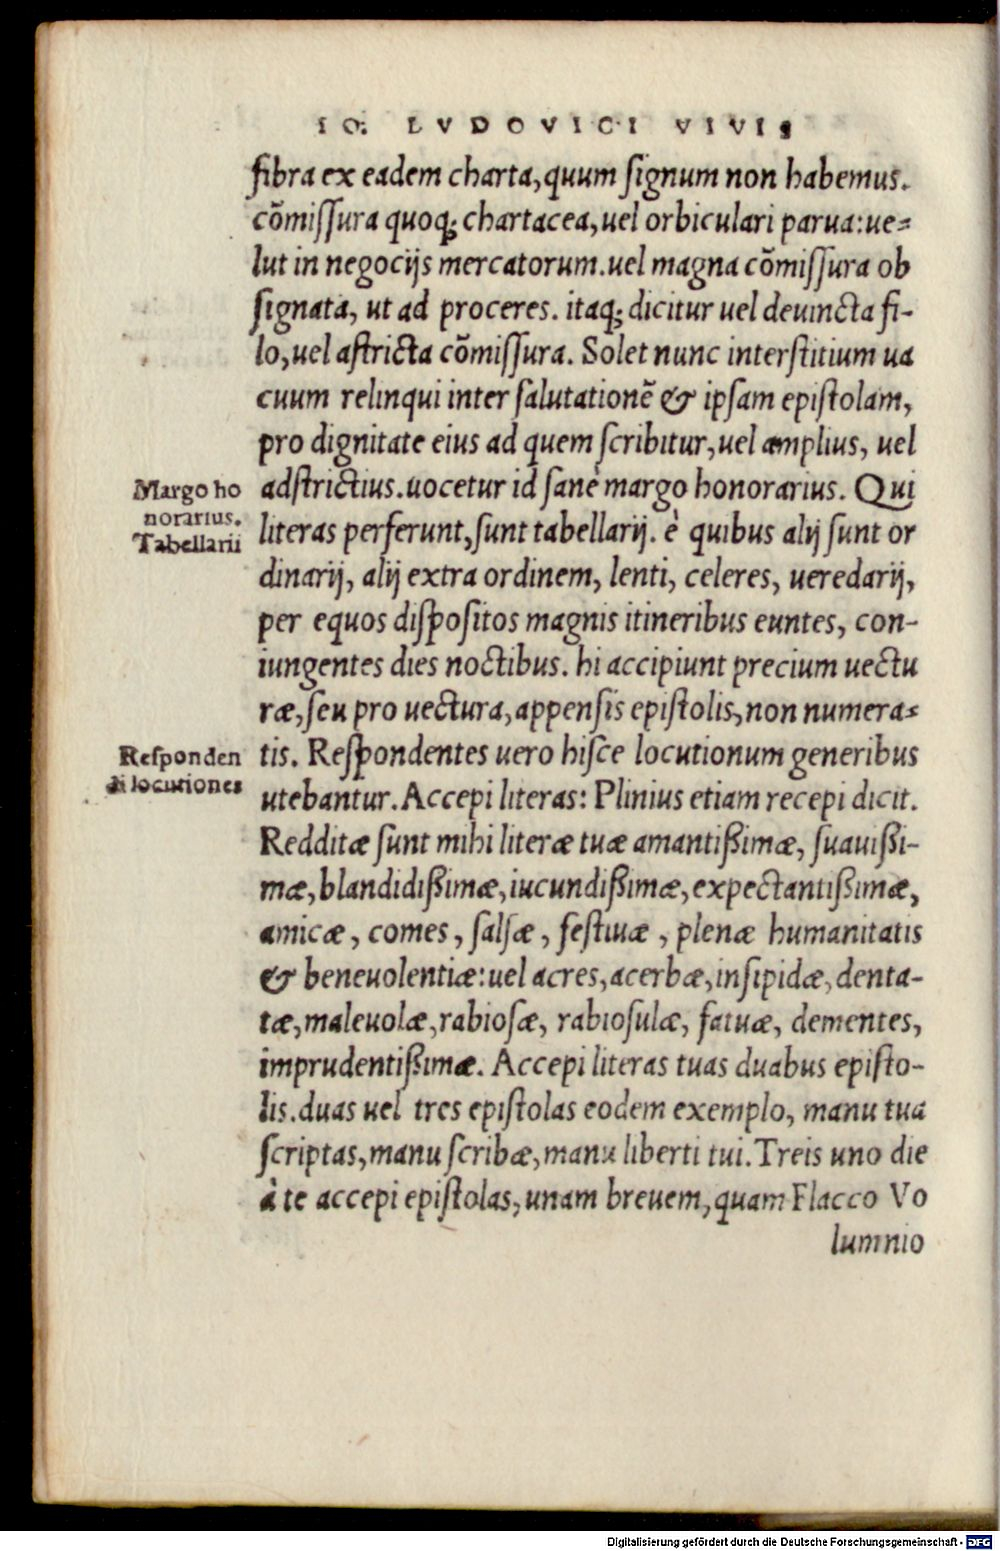 IO. LVDOVICI VIVIS
fibra ex eadem charta, quum ſignum non habemus.
cõmiſſura quoq; chartacea, uel orbiculari parua: ue=
lut in negocijs mercatorum. uel magna cõmiſſura ob
ſignata, ut ad proceres. itaq; dicitur uel deuincta fi-
lo, uel aſtricta cõmiſſura. Solet nunc interſtitium ua
cuum relinqui inter ſalutationẽ & ipſam epiſtolam,
pro dignitate eius ad quem ſcribitur, uel amplius, uel
Margo ho
norarius.
Tabellarii
adſtrictius. uocetur id ſanè margo honorarius. Qui
literas perferunt, ſunt tabellarij. è quibus alij ſunt or
dinarij, alij extra ordinem, lenti, celeres, ueredarij,
per equos diſpoſitos magnis itineribus euntes, con-
iungentes dies noctibus. hi accipiunt precium uectu
ræ, ſeu pro uectura, appenſis epiſtolis, non numera=
Reſponden
di locutiones
tis. Reſpondentes uero hiſce locutionum generibus
utebantur. Accepi literas: Plinius etiam recepi dicit.
Redditæ ſunt mihi literæ tuæ amantißimæ, ſuauißi-
mæ, blandidißimæ, iucundißimæ, expectantißimæ,
amicæ, comes, ſalſæ, feſtiuæ, plenæ humanitatis
& beneuolentiæ: uel acres, acerbæ, inſipidæ, denta-
tæ, maleuolæ, rabioſæ, rabioſulæ, fatuæ, dementes,
imprudentißimæ. Accepi literas tuas duabus epiſto-
lis. duas uel tres epiſtolas eodem exemplo, manu tua
ſcriptas, manu ſcribæ, manu liberti tui. Treis uno die
à te accepi epiſtolas, unam breuem, quam Flacco Vo
lumnio
Digitalisierung gefördert durch die Deutsche Forschungsgemeinschaft - DFG